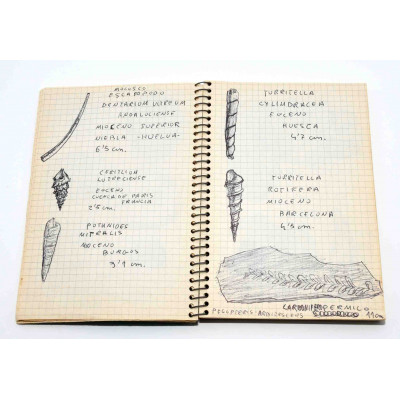 MOLUSCO
ESCAFOPODO
DENTARIUM
ANDALUCIENSE
MIOCENO SUPERIOR
NIEBLA -HUELVA-
6'5 cm.
CERITIUM
EOCENO
CUENCA DE PARIS
FRANCIA
2'5 cm.
POTAMIDES
MITRALIS
MIOCENO
BURGOS
3'9 cm.
TURRITELLA
CYLINDRACEA
EOCENO
HUESCA
4'7 cm.
TURRITELLA
ROTIFERA
MIOCENO
BARCELONA
4'5 cm.
CARBONIFEROPERMICO
PECOPTERIS-ARBORESCENS
11 cm